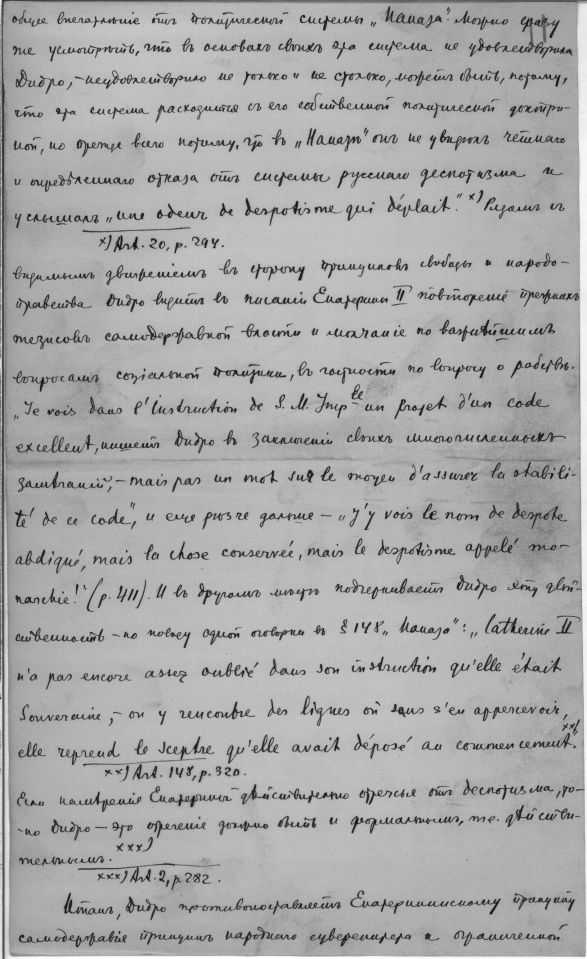 общее впечатлѣніе отъ политической системы „Наказа“. Можно сразу
же усмотрѣть, что въ основахъ своихъ эта система не удовлетворила
Дидро, – неудовлетворило не только и не столько, можетъ быть, потому,
что эта система расходится съ его собственной политической доктри-
ной, но прежде всего потому, что въ „Наказѣ“ онъ не увидѣлъ четкаго
и опредѣленнаго отказа отъ системы русскаго деспотизма и
услышалъ „une odeur de despotisme qui déplait.“ x) Рядомъ съ
x) Art. 20, p. 294.
видимымъ движеніемъ въ сторону принциповъ свободы и народо-
правства Дидро видитъ въ писаніи Екатерины II повтореніе прежнихъ
тезисовъ самодержавной власти и молчаніе по важнѣйшимъ
вопросамъ соціальной политики, въ частности по вопросу о рабствѣ.
„Je vois dans l'Instruction de S. M. Imp le un projet d'un code
excellent, пишетъ Дидро въ заключеніи своихъ многочисленныхъ
замѣчаній, – mais pas un mot sur le moyen d'assurer la stabili-
té de ce code“, и еще рѣзче дальше – „J'y vois le nom de despote
abdiqué, mais la chose conservée, mais le despotisme appelé mo-
narchie!“ (p. 411). И въ другомъ мѣстѣ подчеркиваетъ Дидро эту двой-
ственность – по поводу одной оговорки въ § 148 „Наказа“: „Catherine II
n'a pas encore assez oublié dans son instruction qu'elle était
Souveraine, – on y rencontre des lignes où sans s'en appercevoir,
elle reprend le sceptre qu'elle avait déposé au commencement. xx)
xx) Art. 148, p. 320.
Если намѣреніе Екатерины дѣйствительно отречься отъ деспотизма, то-
по Дидро – это отреченіе должно быть и формальнымъ, и дѣйстви-
тельнымъ. xxx)
xxx) Art. 2, p. 282.
Итакъ, Дидро противопоставляетъ Екатерининскому принципу
самодержавія принципъ народнаго суверенитета и ограниченной